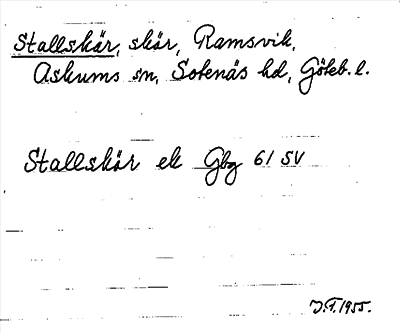 Stallskär, skär, Ramsvik,
Askums sn, Sotenäs hd, Göteb. l.
Stallskär ek Gbg 61 SV
J.F. 1955.